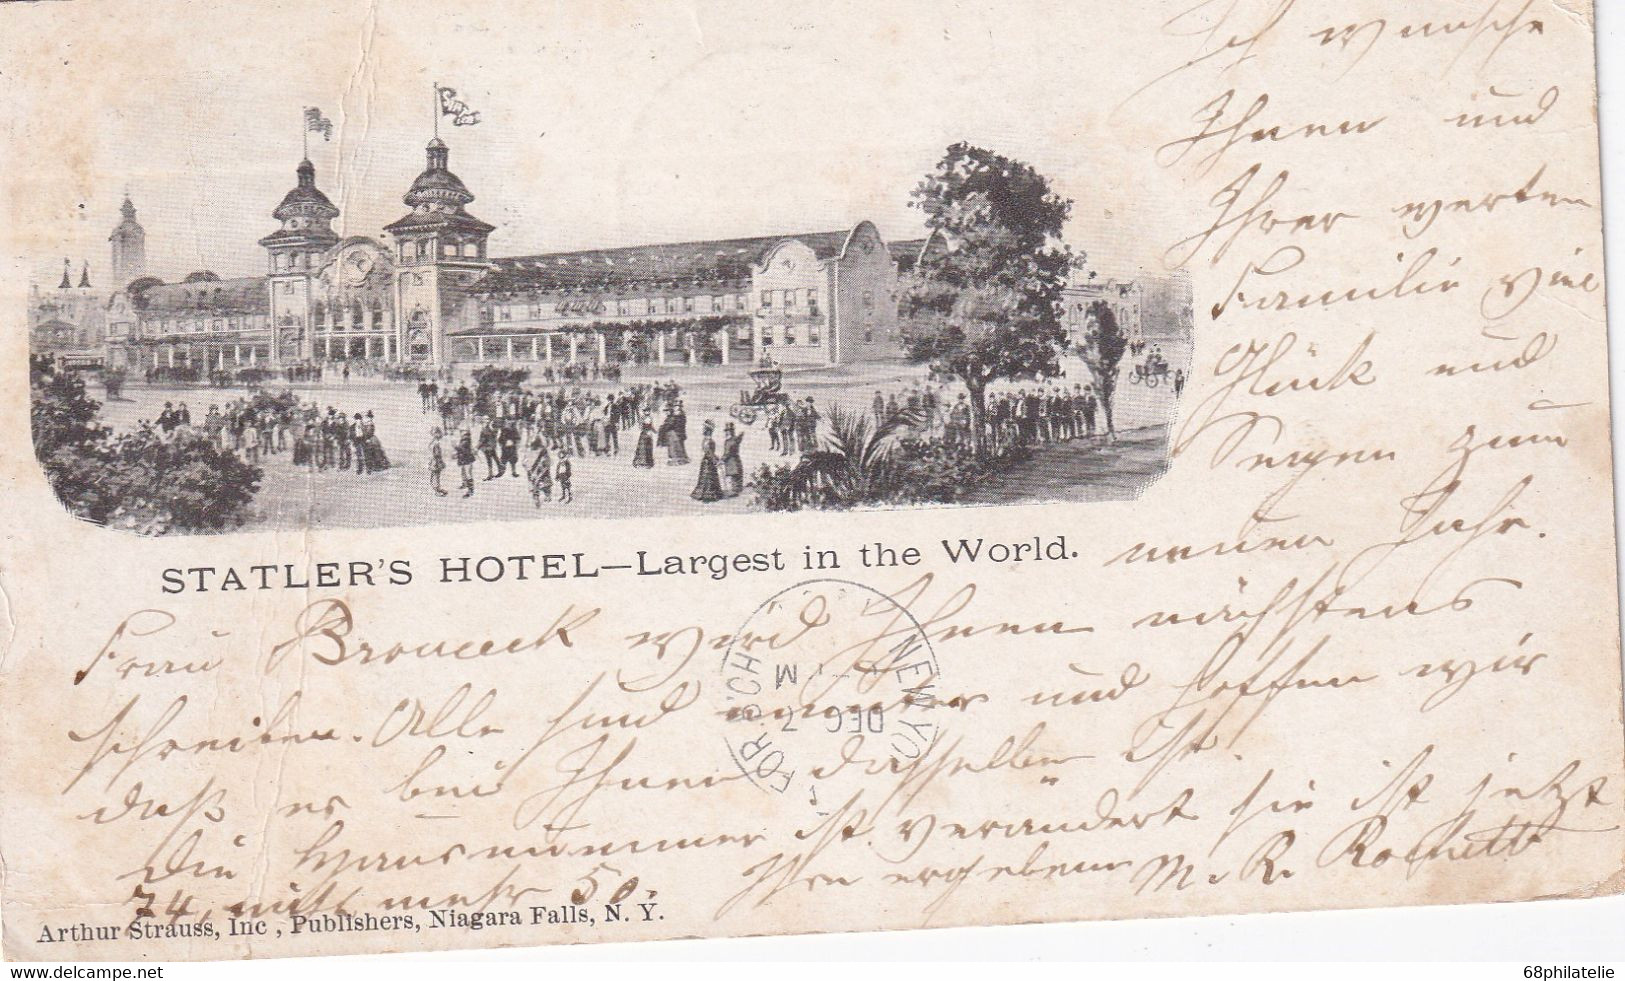 Ich wünsche
Ihnen und
Ihrer werten
Familie viel
Glück und
Segen zum
neuen Jahr.
STATLER'S HOTEL—Largest in the World.
Frau wird Ihnen nächstens
schreiben. Alle sind munter und hoffen wir
daß es bei Ihnen dasselbe ist.
Die Hausnummer ist verändert sie ist jetzt
74, nicht mehr 50.
Ihr ergebener M. R.
NEW YO
DEC 7
M
FOR'G'N B'CH
Arthur Strauss, Inc , Publishers, Niagara Falls, N. Y.
www.delcampe.net
68philatelie